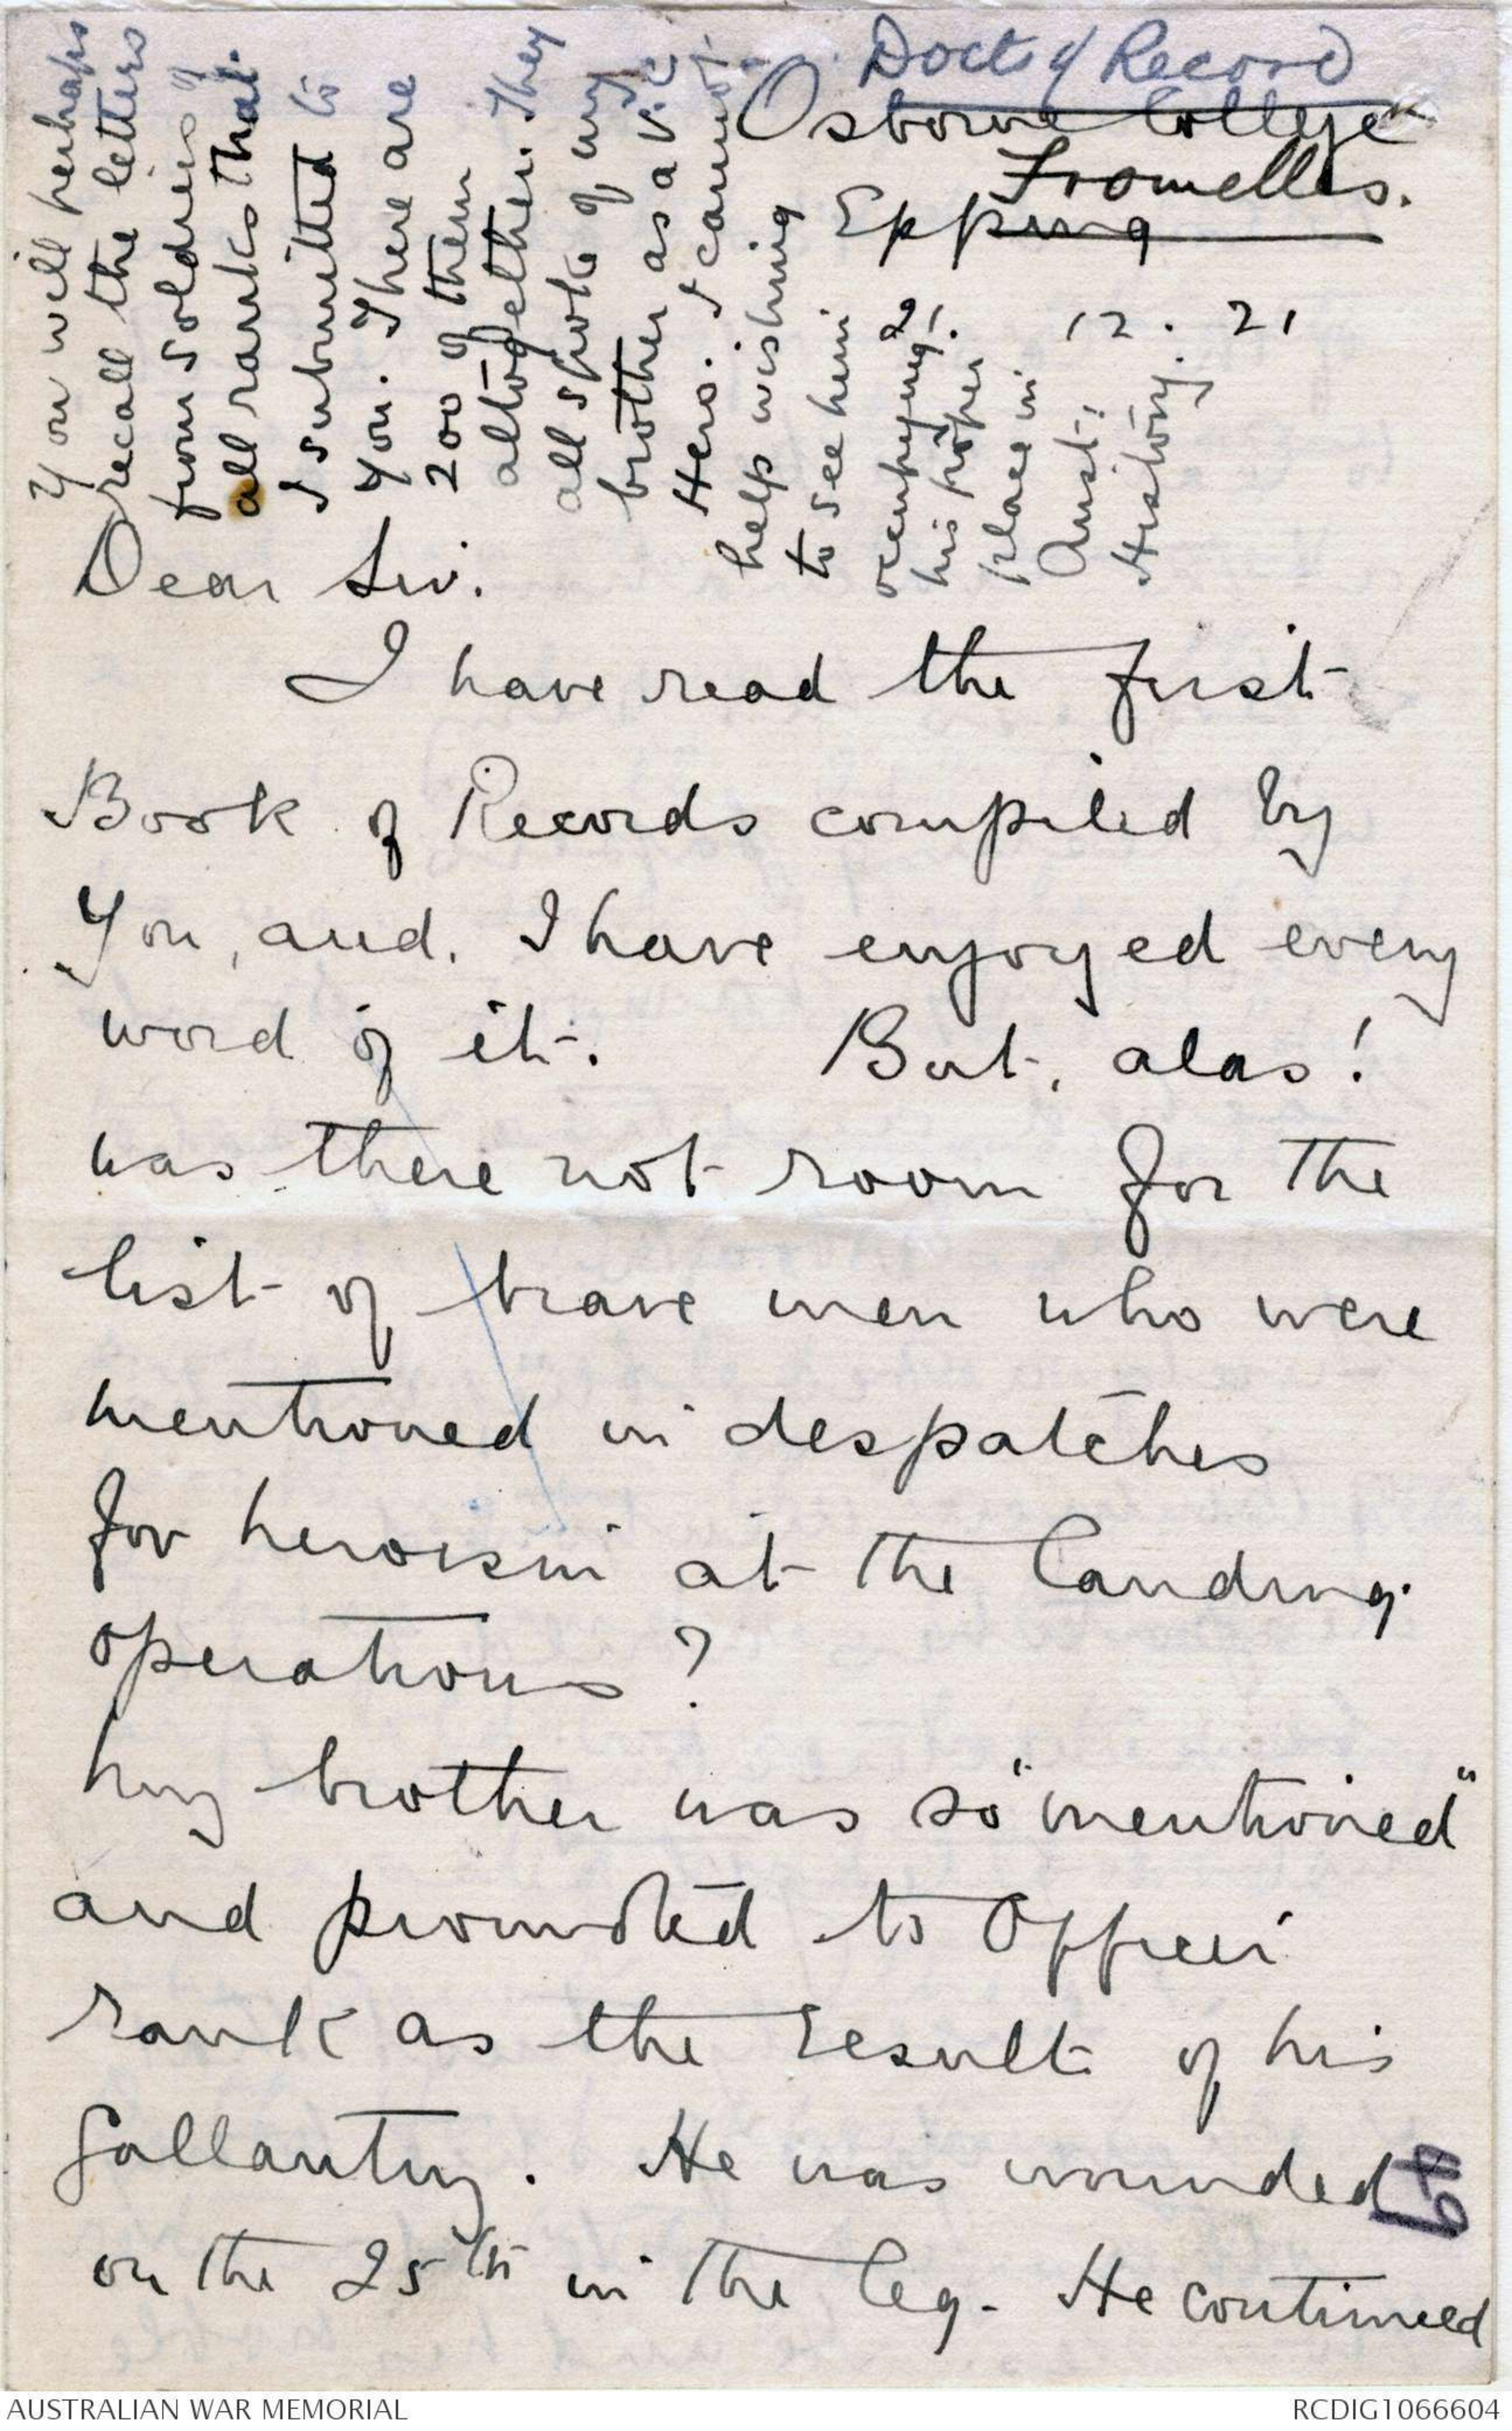 Doct of Record
Osborne College
Fromelles.
Epping
21. 12. 21
You will perhaps
recall the letters
from soldiers of
all ranks that
I submitted to
you. There are
200 of them
altogether. They
all spoke of my
brother as a V.C.
Hero. I cannot
help wishing
to see him
occupying
his proper
place in
Aust:
History.
Dear Sir.
I have read the first
Book of Records compiled by
You, and. I have enjoyed every
word of it. But, alas!
was there not room for the
list of brave men who were
mentioned in despatches
for heroism at the Landing
operations?
My brother was so "mentioned"
and promoted to Officer
rank as the result of his
gallantry. He was wounded
on the 25th in the leg. He continued
AUSTRALIAN WAR MEMORIAL
RCDIG1066604